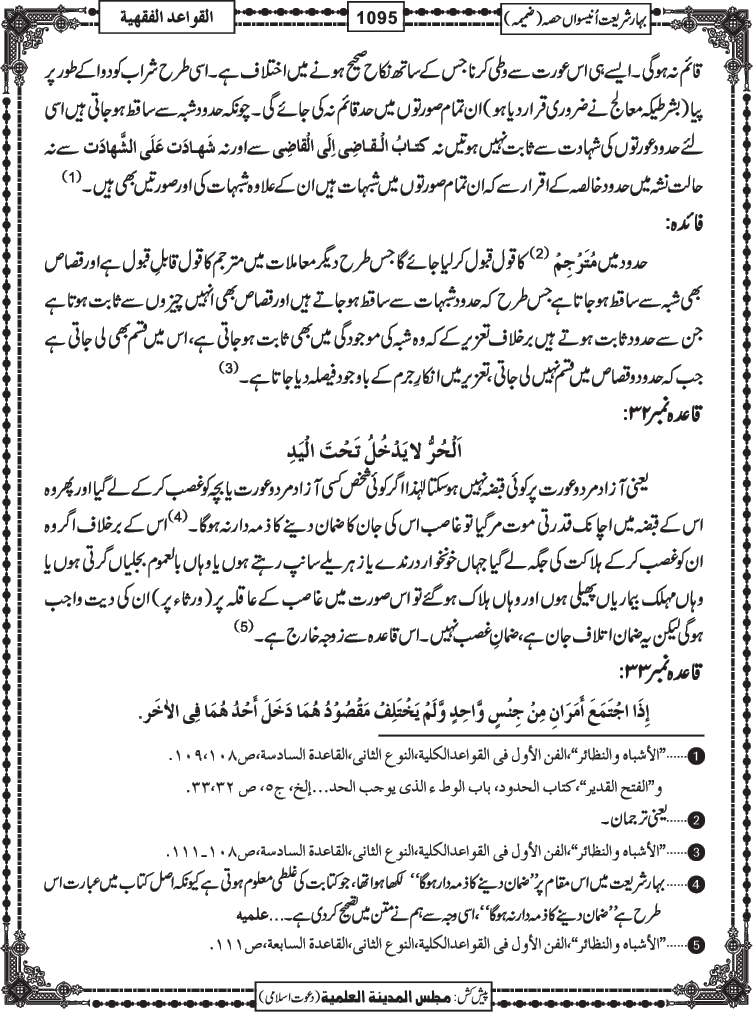 بہار شریعت اُنیسواں حصہ (ضمیمہ)
1095
القواعد الفقهية
قائم نہ ہوگی۔ ایسے ہی اس عورت سے وطی کرنا جس کے ساتھ نکاح صحیح ہونے میں اختلاف ہے۔ اسی طرح شراب کو دوا کے طور پر
پیا (بشرطیکہ معالج نے ضروری قرار دیا ہو) ان تمام صورتوں میں حد قائم نہ کی جائے گی۔ چونکہ حدود شبہ سے ساقط ہو جاتی ہیں اسی
لئے حدود عورتوں کی شہادت سے ثابت نہیں ہوتیں نہ کتابُ الْقاضِی اِلَی الْقاضِی سے اور نہ شَهادَت عَلَی الشَّهادَت سے نہ
حالت نشہ میں حدود خالصہ کے اقرار سے کہ ان تمام صورتوں میں شبہات ہیں ان کے علاوہ شبہات کی اور صورتیں بھی ہیں۔ (1)
فائدہ:
حدود میں مُتَرْجِمْ (2) کا قول قبول کر لیا جائے گا جس طرح دیگر معاملات میں مترجم کا قول قابلِ قبول ہے اور قصاص
بھی شبہ سے ساقط ہو جاتا ہے جس طرح کہ حدود شبہات سے ساقط ہو جاتے ہیں اور قصاص بھی انہیں چیزوں سے ثابت ہوتا ہے
جن سے حدود ثابت ہوتے ہیں برخلاف تعزیر کے کہ وہ شبہ کی موجودگی میں بھی ثابت ہو جاتی ہے، اس میں قسم بھی لی جاتی ہے
جب کہ حدود و قصاص میں قسم نہیں لی جاتی، تعزیر میں انکارِ جرم کے باوجود فیصلہ دیا جاتا ہے۔ (3)
قاعدہ نمبر ۳۲:
اَلْحُرُّ لا يَدْخُلُ تَحْتَ الْيَدِ
یعنی آزاد مرد و عورت پر کوئی قبضہ نہیں ہو سکتا لہٰذا اگر کوئی شخص کسی آزاد مرد و عورت یا بچہ کو غصب کر کے لے گیا اور پھر وہ
اس کے قبضہ میں اچانک قدرتی موت مر گیا تو غاصب اس کی جان کا ضمان دینے کا ذمہ دار نہ ہوگا۔ (4) اس کے برخلاف اگر وہ
ان کو غصب کر کے ہلاکت کی جگہ لے گیا جہاں خونخوار درندے یا زہریلے سانپ رہتے ہوں یا وہاں بالعموم بجلیاں گرتی ہوں یا
وہاں مہلک بیماریاں پھیلی ہوں اور وہاں ہلاک ہو گئے تو اس صورت میں غاصب کے عاقلہ پر (ورثاء پر) ان کی دیت واجب
ہوگی لیکن یہ ضمان اتلاف جان ہے، ضمانِ غصب نہیں۔ اس قاعدہ سے زوجہ خارج ہے۔ (5)
قاعدہ نمبر ۳۳:
إِذَا اجْتَمَعَ أَمَرَانِ مِنْ جِنْسٍ وَّاحِدٍ وَّلَمْ يَخْتَلِفْ مَقْصُوْدُ هُمَا دَخَلَ أَحَدُ هُمَا فِى الْاٰخَر.
1......"الأشباه والنظائر"،الفن الأول فى القواعدالكلية،النوع الثانى،القاعدة السادسة،ص۱۰۹،۱۰۸.
و"الفتح القدير"،كتاب الحدود، باب الوطء الذى يوجب الحد...إلخ، ج٥، ص ۳۳،۳۲.
2......یعنی ترجمان۔
3......"الأشباه والنظائر"،الفن الأول فى القواعدالكلية،النوع الثانى،القاعدة السادسة،ص۱۰۸-۱۱۱.
4......بہار شریعت میں اس مقام پر "ضمان دینے کا ذمہ دار ہوگا" لکھا ہوا تھا، جو کتابت کی غلطی معلوم ہوتی ہے کیونکہ اصل کتاب میں عبارت اس
طرح ہے "ضمان دینے کا ذمہ دار نہ ہوگا"، اسی وجہ سے ہم نے متن میں تصحیح کر دی ہے۔...علمیه
5......"الأشباه والنظائر"،الفن الأول فى القواعدالكلية،النوع الثانى،القاعدة السابعة،ص۱۱۱.
پیش کش: مجلس المدينة العلمية (دعوت اسلامی)